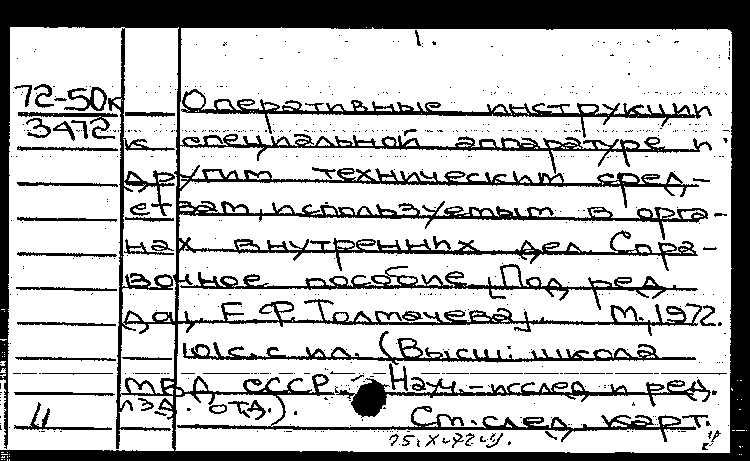 1.
72-50к Оперативные инструкции
3472 к специальной аппаратуре и
другим техническим сред-
ствам, используемым в орга-
нах внутренних дел. Спра-
вочное пособие [Под ред.
да, Е.Ф. Толмачева]. М., 1972.
101с. с ил. (Высш. школа
МВД СССР. Науч.-исслед и ред.
изд. отд.).
11 См. след. карт.